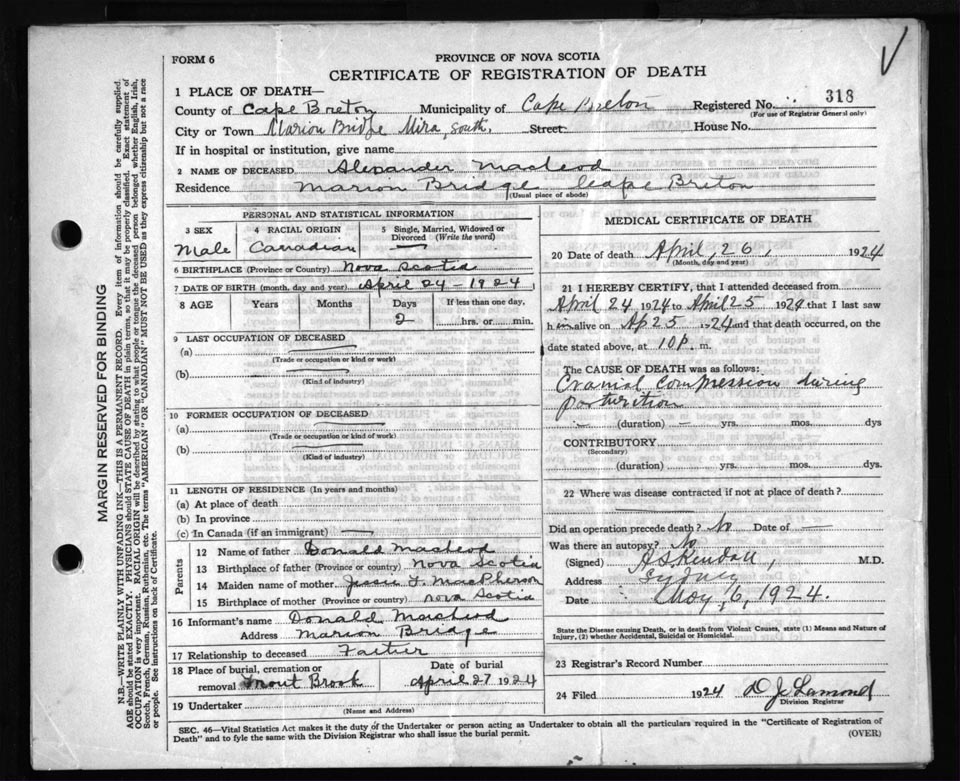 FORM 6
PROVINCE OF NOVA SCOTIA
CERTIFICATE OF REGISTRATION OF DEATH
1 PLACE OF DEATH—
County of Cape Breton Municipality of Cape Breton Registered No. 318
(For use of Registrar General only)
City or Town Marion Bridge Mira, South, Street House No.
If in hospital or institution, give name
2 NAME OF DECEASED Alexander MacLeod
Residence Marion Bridge Cape Breton
(Usual place of abode)
PERSONAL AND STATISTICAL INFORMATION
3 SEX 4 RACIAL ORIGIN 5 Single, Married, Widowed or Divorced (Write the word)
Male Canadian —
6 BIRTHPLACE (Province or Country) Nova Scotia
7 DATE OF BIRTH (month, day and year) April 24 - 1924
8 AGE Years Months Days If less than one day,
2 hrs. or min.
9 LAST OCCUPATION OF DECEASED
(a)
(Trade or occupation or kind or work)
(b)
(Kind of industry)
10 FORMER OCCUPATION OF DECEASED
(a)
(Trade or occupation or kind of work)
(b)
(Kind of industry)
11 LENGTH OF RESIDENCE (In years and months)
(a) At place of death
(b) In province
(c) In Canada (if an immigrant) —
Parents
12 Name of father Donald MacLeod
13 Birthplace of father (Province or country) Nova Scotia
14 Maiden name of mother Jessie F. MacPherson
15 Birthplace of mother (Province or country) Nova Scotia
16 Informant's name Donald MacLeod
Address Marion Bridge
17 Relationship to deceased Father
18 Place of burial, cremation or removal Trout Brook Date of burial April 27 1924
19 Undertaker
(Name and Address)
MEDICAL CERTIFICATE OF DEATH
20 Date of death April, 26, 1924
(Month, day and year)
21 I HEREBY CERTIFY, that I attended deceased from
April 24 1924 to April 25 1924 that I last saw
him alive on Ap 25 1924 and that death occurred, on the
date stated above, at 10 p. m.
The CAUSE OF DEATH was as follows:
Cranial Compression during
parturition
(duration) — yrs. mos. dys
CONTRIBUTORY
(Secondary)
(duration) yrs. mos. dys.
22 Where was disease contracted if not at place of death?
Did an operation precede death? No Date of —
Was there an autopsy? No
(Signed) H S Kendall, M.D.
Address Sydney
Date May, 6, 1924.
State the Disease causing Death, or in death from Violent Causes, state (1) Means and Nature of
Injury, (2) whether Accidental, Suicidal or Homicidal.
23 Registrar's Record Number
24 Filed 1924 D J Lamond
Division Registrar
SEC. 46—Vital Statistics Act makes it the duty of the Undertaker or person acting as Undertaker to obtain all the particulars required in the "Certificate of Registration of
Death" and to fyle the same with the Division Registrar who shall issue the burial permit.
(OVER)
MARGIN RESERVED FOR BINDING
N.B.—WRITE PLAINLY WITH UNFADING INK—THIS IS A PERMANENT RECORD. Every item of information should be carefully supplied.
AGE should be stated EXACTLY. PHYSICIANS should STATE CAUSE OF DEATH in plain terms, so that it may be properly classified. Exact statement of
OCCUPATION is very important. RACIAL ORIGIN will be described by stating to what people or tongue the deceased person belonged whether English, Irish,
Scotch, French, German, Russian, Ruthenian, etc. The terms "AMERICAN" OR "CANADIAN" MUST NOT BE USED as they express citizenship but not a race
or people. See instructions on back of Certificate.